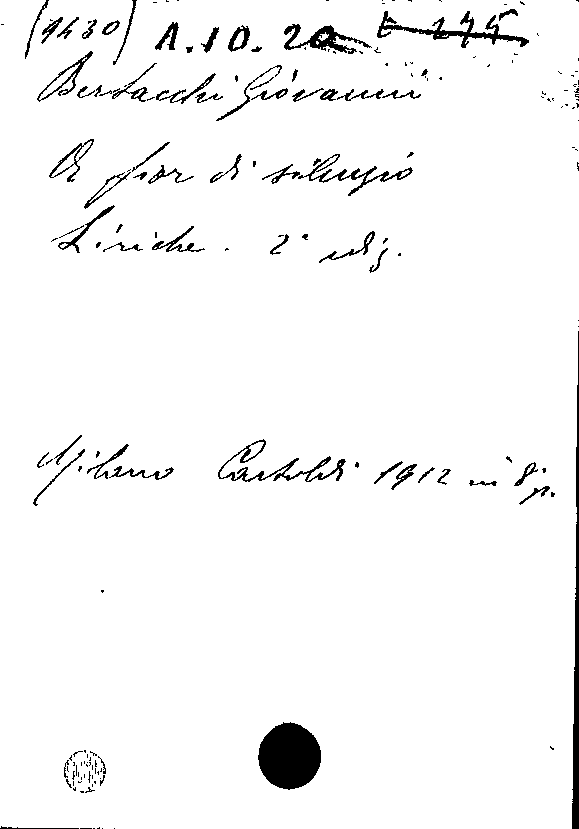 (1430) A.10.20 E 275
Bertacchi Giovanni
A fior di silenzio
Liriche. 2ª ediz.
Milano Castoldi 1912 in 8° p.